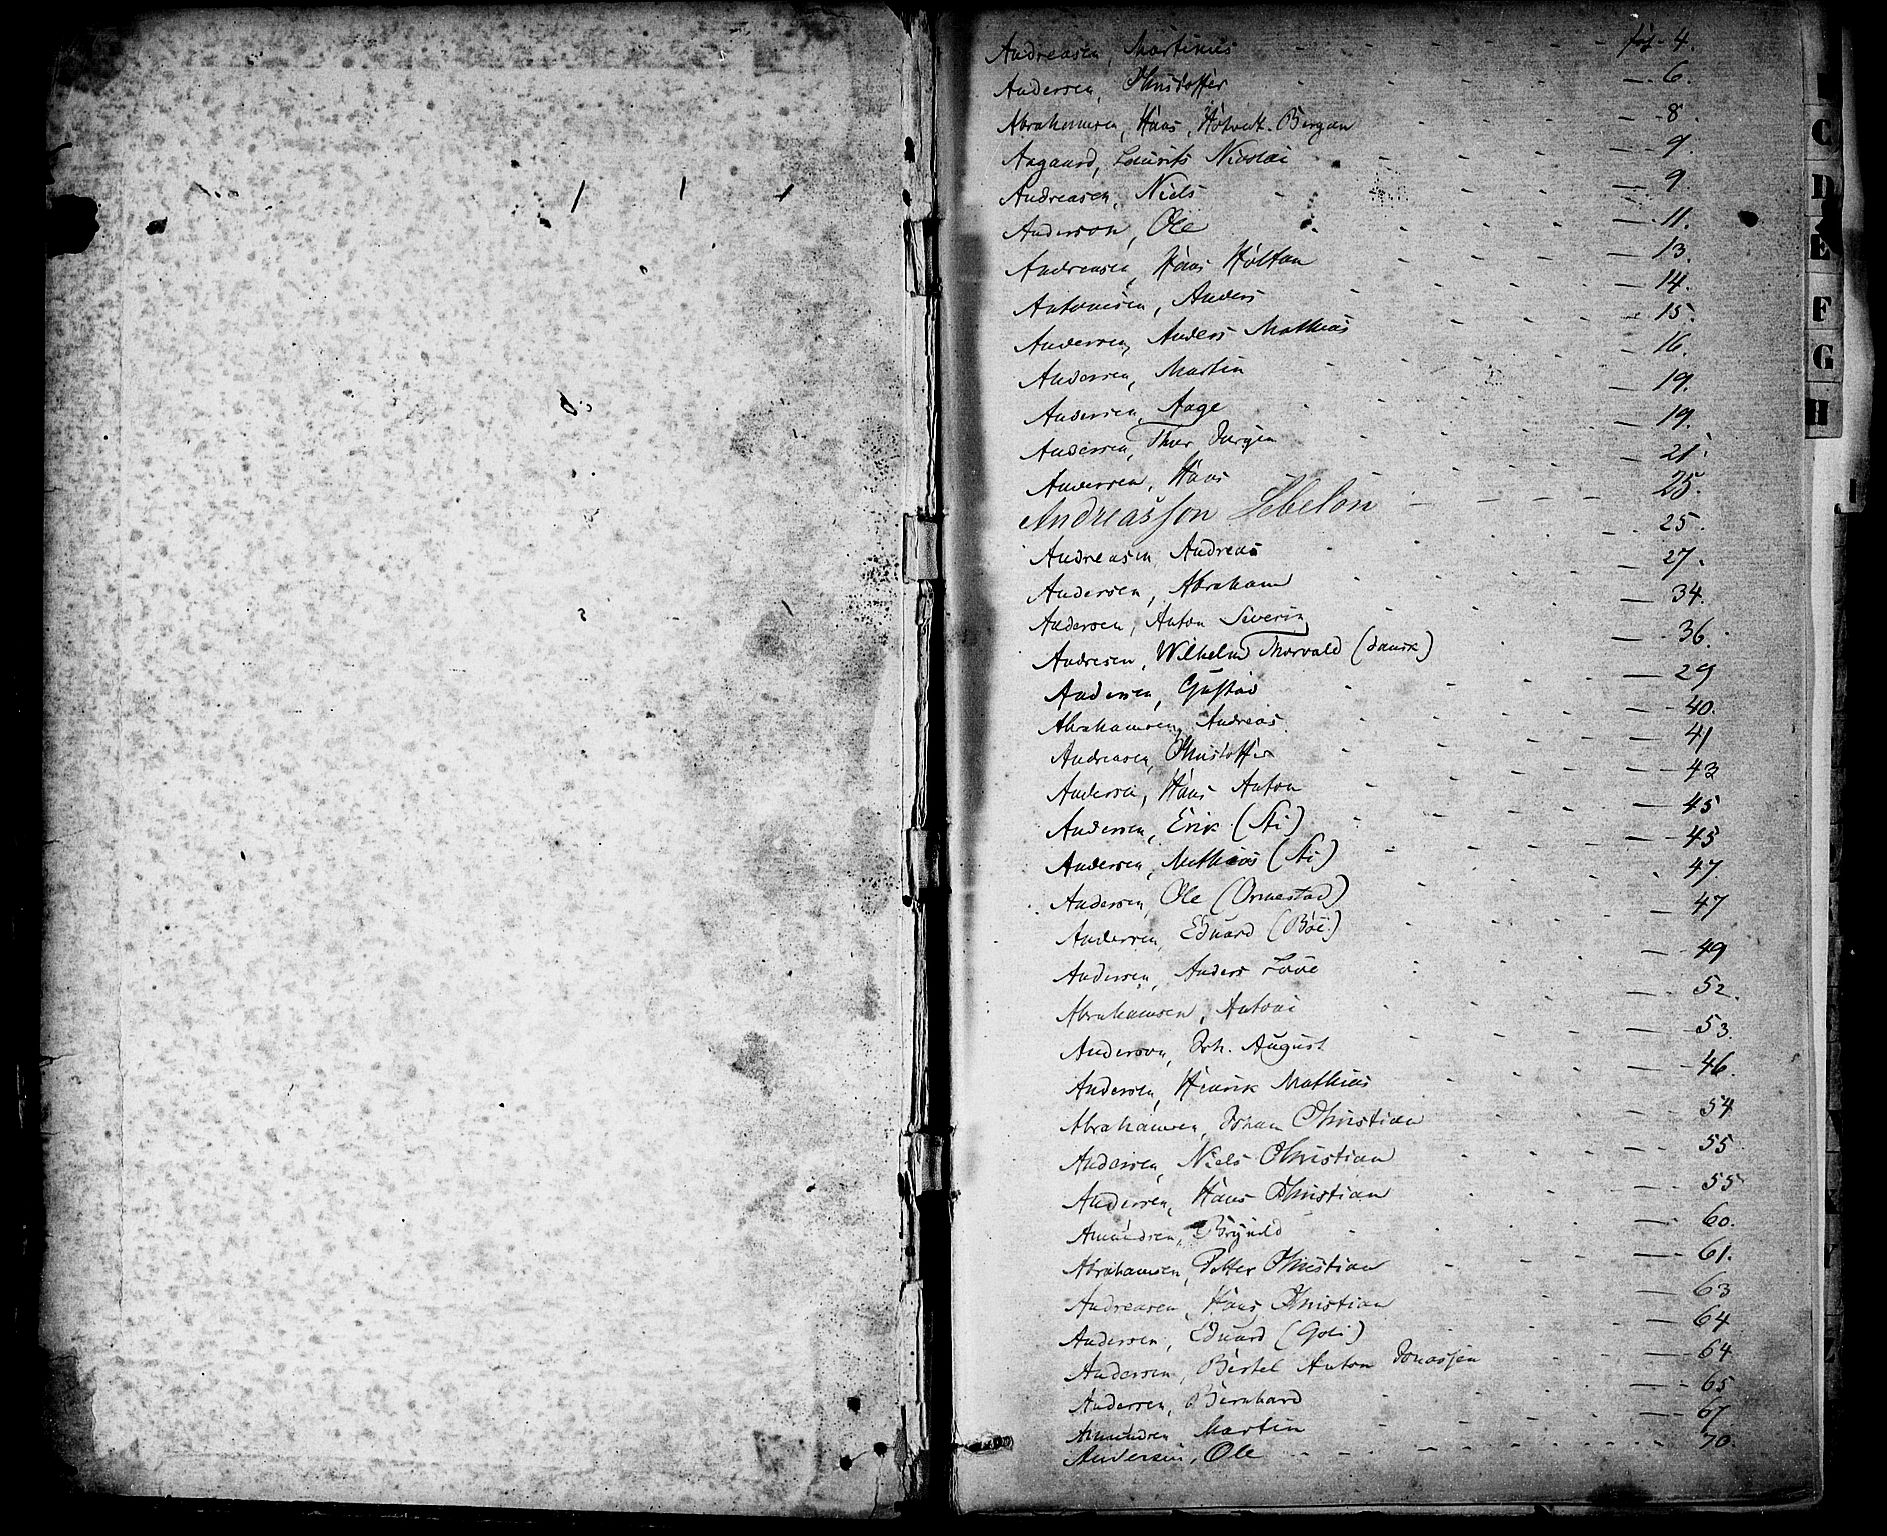 Andreasen, Martinus - - - - 4.
Andersen, Christoffer - - - 6.
Abrahamsen, Hans, Hotvedt-Bergan - - 8.
Aagaard, Laurits Nicolai - - - 9
Andreasen, Niels - - - 9.
Anderson, Ole - - - 11.
Andreasen, Hans Holtan - - - 13.
Antonisen, Anders - - - 14.
Andersen, Anders Mathias - - - 15.
Andersen, Martin - - - 16.
Andersen, Aage - - - 19.
Andersen, Thor Jørgen - - - 19.
Andersen, Hans - - - 21.
Andreasson - - - 25.
Andreasen Andreas - - - 25.
Andersen, Abraham - - - 27.
Andersen, Anton Severin - - - 34.
Andresen, Wilhelm Thorvald (dansk) - - 36.
Andersen, Gustav - - - 29
Abrahamsen, Andreas - - - 40.
Andreasen, Christoffer - - - 41
Andersen, Hans Anton - - - 43
Andersen, Erik (Mi) - - - 45
Andersen, Mathias (Mi) - - - 45
Andersen, Ole (Ormestad) - - - 47
Andersen, Eduard (Böe.) - - - 47
Andersen, Anders - - - 49
Abrahamsen, Antoni - - - 52.
Anderson, Joh. August - - - 53.
Andersen, Henrik Mathias - - - 46.
Abrahamsen, Johan Christian - - - 54
Andersen, Niels Christian - - - 55
Andersen, Hans Christian - - - 55
Amundsen, Brynild - - - 60.
Abrahamsen, Petter Christian - - - 61.
Andreasen, Hans Christian - - - 63
Andersen, Eduard (Goli) - - - 64
Andersen, Bertel Anton Jonassen - - - 64
Andersen, Bernhard - - - 65
Amundsen Martin - - - 67
Andersen, Ole - - - 70.
C
D
E
F
G
H